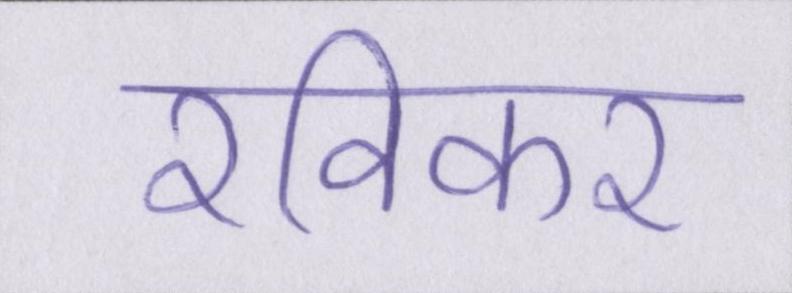 रविकर